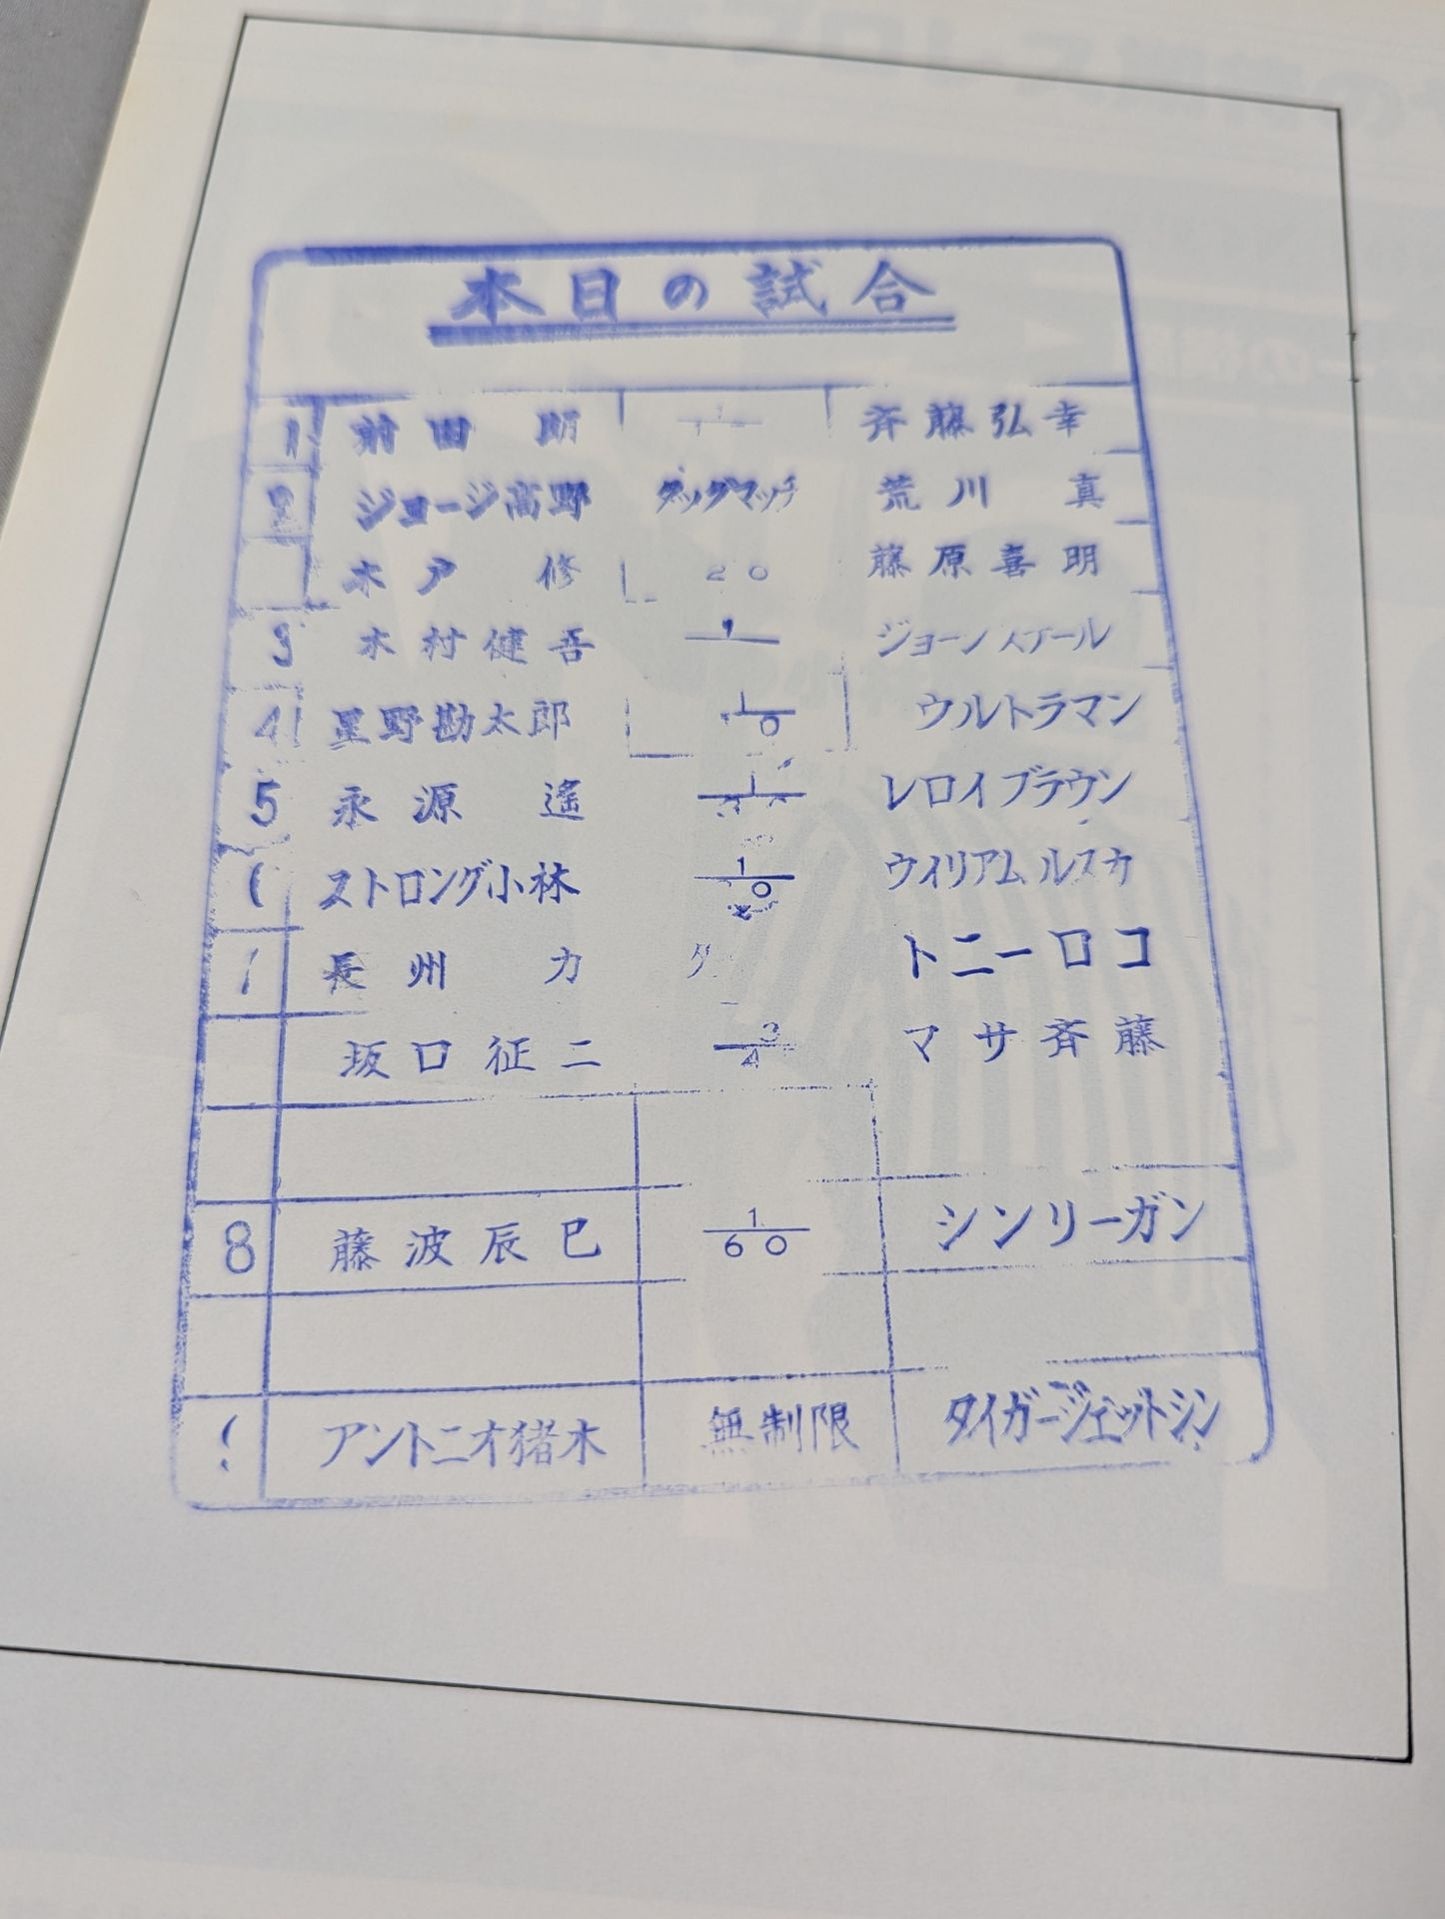 本日の試合
1 前田 明 斉藤弘幸
2 ジョージ高野 タッグマッチ 荒川 真
木戸 修 20 藤原喜明
3 木村健吾 ジョーノ スチール
4 星野勘太郎 1 0 ウルトラマン
5 永源 遙 1 レロイブラウン
ストロング小林 1 0 ウイリアムルスカ
長州 力 タ トニーロコ
坂口征二 3 4 マサ斉藤
8 藤波辰巳 1 60 シンリーガン
アントニオ猪木 無制限 タイガージェットシン